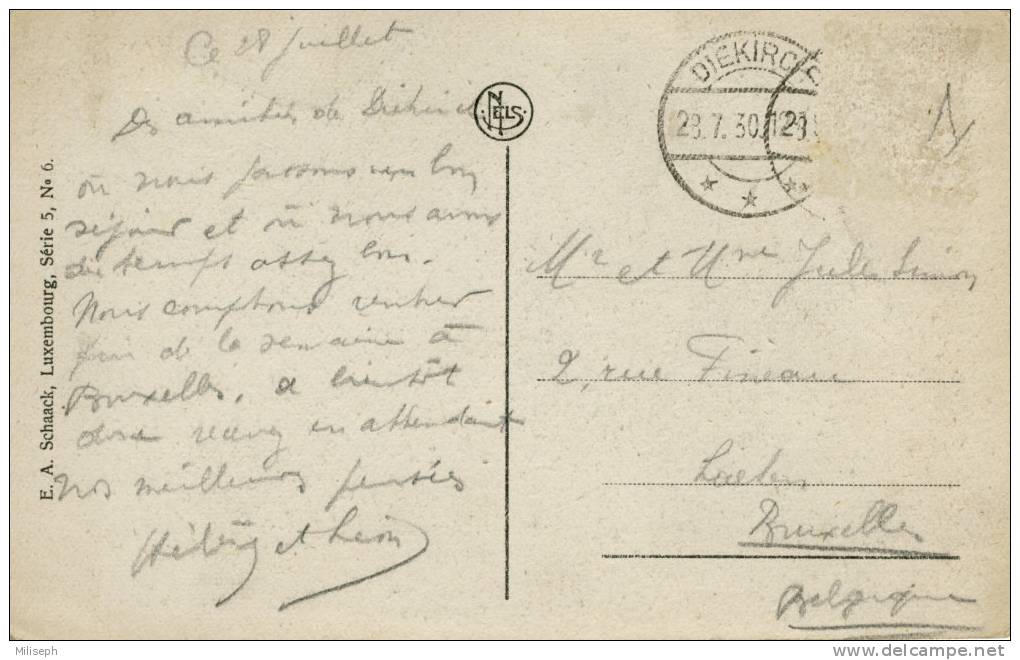 Ce 28 juillet
Des amitiés de Diekirch
où nous passons un bon
séjour et où nous avons
du temps assez bon.
Nous comptons rentrer
fin de la semaine à
Bruxelles, a bientôt
donc recevez en attendant
Nos meilleures pensées
et Léon
E. A. Schaack, Luxembourg, Série 5, No 6.
NELS
DIEKIRCH
28.7.30.12
Mr et Mme Jules Simon
2, rue Fineau
Laeken
Bruxelles
Belgique
Miliseph
delcampe.net